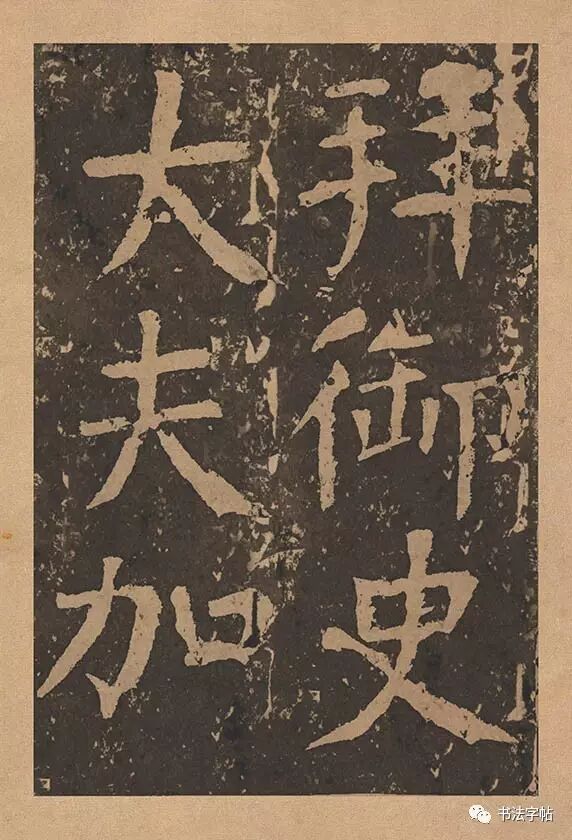 拜御史
大夫加
书法字帖